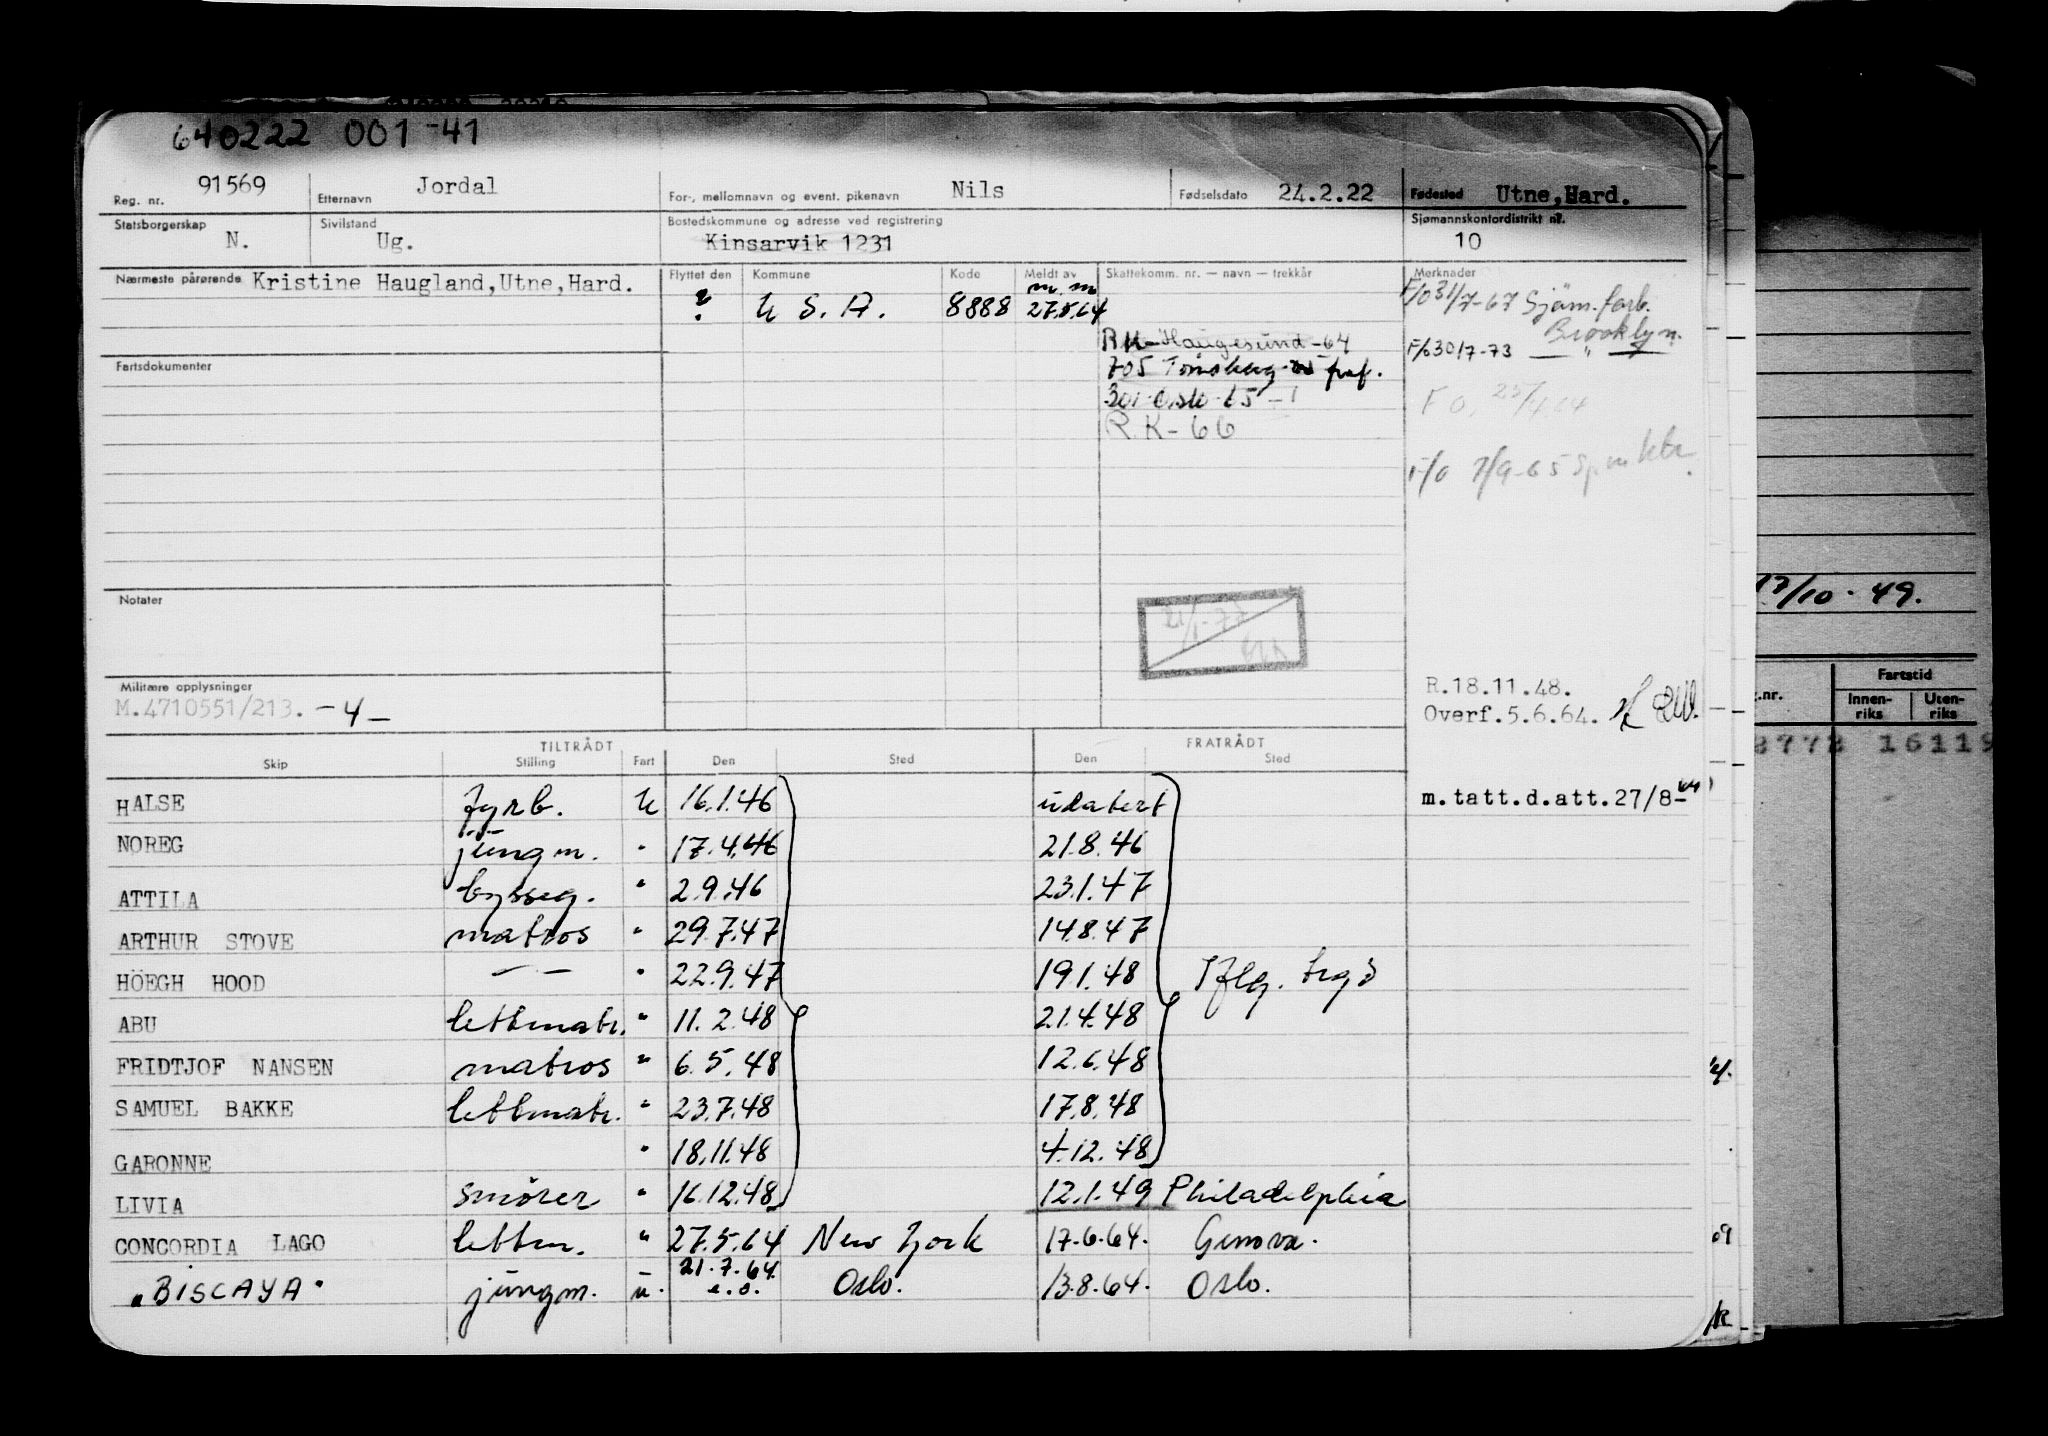 640222 001-41
Reg. nr. 91569 Etternavn Jordal For-, mellomnavn og event. pikenavn Nils Fødselsdato 24.2.22 Fødested Utne,Hard.
Statsborgerskap N. Sivilstand Ug. Bostedskommune og adresse ved registrering Kinsarvik 1231 Sjømannskontordistrikt nr. 10
Nærmeste pårørende Kristine Haugland,Utne,Hard. Flyttet den Kommune Kode Meldt av Skattekomm. nr. — navn — trekkår Merknader
? U S. A. 8888 m.m 27.5.64 F/o 31/7-67 Sjöm.forb.
Brooklyn.
RK-Haugesund-64 F/o 30/7-73 — " —
Fartsdokumenter 705 Tönsberg
301-Oslo-65-1 F O. 25/4.64
R.K-66
F/o 7/9-65
17/10-49.
Notater
21/1-77
Militære opplysninger
M.4710551/213. -4-
R.18.11.48.
Overf.5.6.64.
TILTRÅDT FRATRÅDT
Skip Stilling Fart Den Sted Den Sted
HALSE fyrb. U 16.1.46 udatert m.tatt.d.att.27/8-64
NOREG jungm. " 17.4.46 21.8.46
ATTILA bysseg. " 2.9.46 23.1.47
ARTHUR STOVE matros " 29.7.47 14.8.47
HÖEGH HOOD — — " 22.9.47 19.1.48
ABU lettmatr. " 11.2.48 21.4.48
FRIDTJOF NANSEN matros " 6.5.48 12.6.48
SAMUEL BAKKE lettmatr. " 23.7.48 17.8.48
GARONNE " 18.11.48 4.12.48
LIVIA smörer " 16.12.48 12.1.49 Philadelphia
CONCORDIA LAGO lettm. " 27.5.64 New York 17.6.64. Genova.
"BISCAYA" jungm. u. 21.7.64 e.o. Oslo. 13.8.64. Oslo.
Fartstid
.nr. Innen-riks Uten-riks
16119